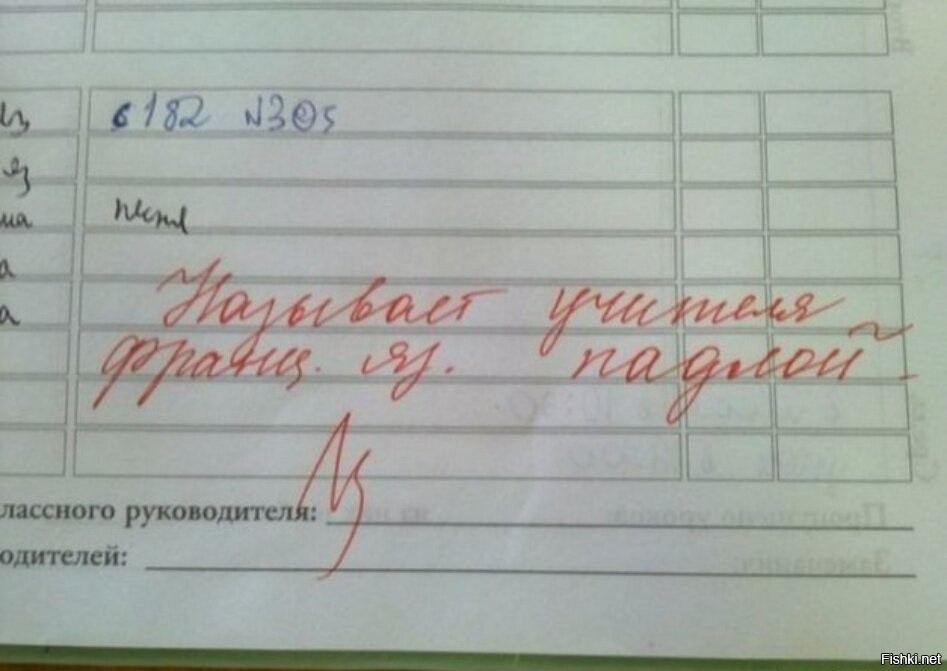 с 182 №305
песня
Называет учителя
франц. яз. падлой
лассного руководителя:
одителей:
Fishki.net